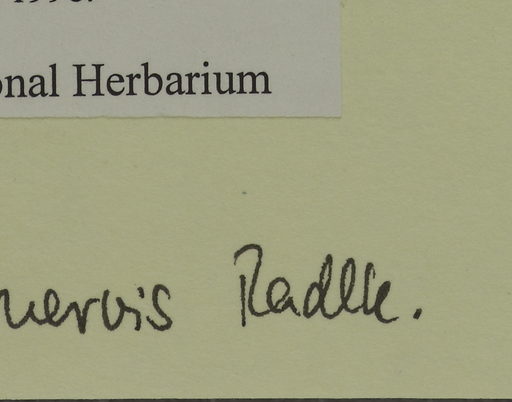 onal Herbarium
nervis Radlk.